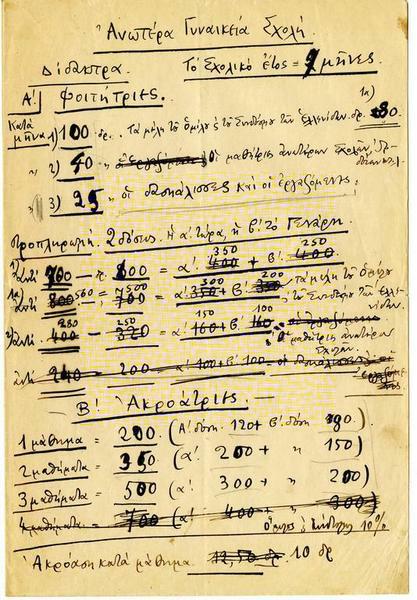 Ἀνωτέρα Γυναικεία Σχολή.
Δίδακτρα. Τὸ Σχολικὸ ἔτος = 9 μῆνες.
Α'.) Φοιτήτριες.
Κατὰ μῆνα 1) 100 δρ. Τὰ μέλη τοῦ ὁμίλου τοῦ Συνδέσμου τῶν Ἑλληνίδων δρ. 80
1α)
" 2) 40 " οἱ μαθήτριες ἀνωτέρων σχολῶν,
" 3) 25 " οἱ δασκάλισσες καὶ οἱ ἐργαζόμενες.
Προπληρωμή. 2 δόσεις. Ἡ α' τώρα, ἡ β' τὸ Γενάρη.
350 250
1) ἀντὶ 700 — 600 = α'. 400 + β'. 400
560 500 300 200
1α ἀντὶ 800 = 700 = α'. 350 + β'. 350 τὰ μέλη τοῦ ὁμίλου
τοῦ Συνδέσμου τῶν Ἑλληνίδων.
280 250 150 100
2) ἀντὶ 400 — 320 = α' 160 + β'. 160
μαθήτριες ἀνωτέρων
σχολῶν.
ἀντὶ 240 = 200 = α'. 100 + β'. 100 = οἱ
Β'. Ἀκροάτριες.
1 μάθημα = 200. (Α'. δόση. 120 + β'. δόση
2 μαθήματα = 350 (α'. 200 + " 150)
3 μαθήματα = 500 (α'. 300 + " 200)
4 μαθήματα = 700 (α'. 400 + " 300)
10%
Ἀκρόαση κατὰ μάθημα 12,50 δρ. 10 δρ